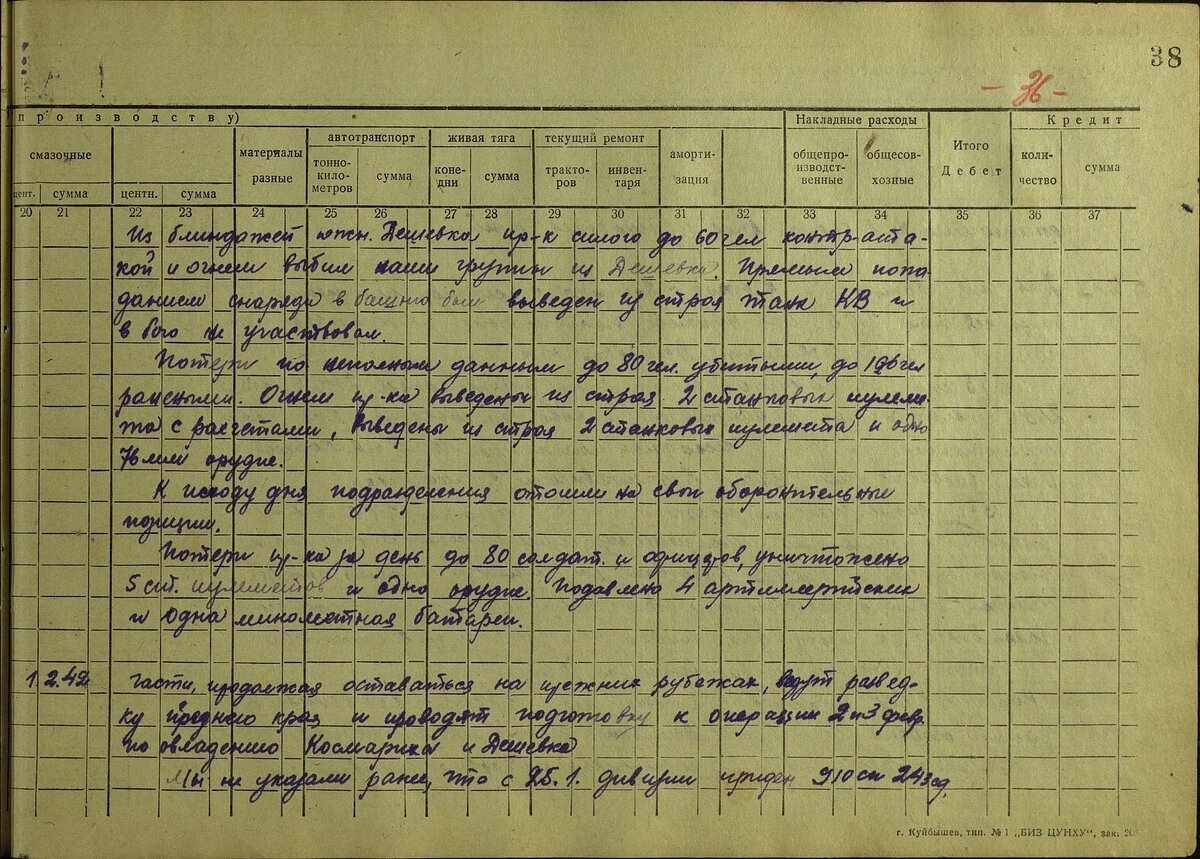 38
- 36 -
производству)
Накладные расходы
Кредит
смазочные
материалы разные
автотранспорт
живая тяга
текущий ремонт
аморти-
зация
Итого
Дебет
тонно-
кило-
метров
сумма
коне-
дни
сумма
тракто-
ров
инвен-
таря
общепро-
изводст-
венные
общесов-
хозные
коли-
чество
сумма
цент.
сумма
центн.
сумма
20 21 22 23 24 25 26 27 28 29 30 31 32 33 34 35 36 37
Из блиндажей южн. Дешевка пр-к силою до 60 чел контр-ата-
кой и огнем выбил наши группы из Дешевка. Прямым попа
данием снаряда в башню был выведен из строя танк КВ и
в бою не участвовал.
Потери по неполным данным до 80 чел. убитыми, до 196 чел
ранеными. Огнем пр-ка выведены из строя 2 станковых пулеме-
та с расчетами, выведены из строя 2 станковых пулемета и одно
76 мм орудие.
К исходу дня подразделения отошли на свои оборонительные
позиции.
Потери пр-ка за день до 80 солдат. и офицеров, уничтожено
5 ст. пулеметов и одно орудие. Подавлено 4 артиллерийских
и одна минометная батареи.
1.2.42 Части, продолжая оставаться на прежних рубежах, ведут развед-
ку преднего края и проводят подготовку к операции 2 и 3 февр.
по овладению Космариха и Дешевка
Мы не указали ранее, что с 25.1. дивизии придан 910 сп 243 сд.
г. Куйбышев, тип. № 1 „БИЗ ЦУНХУ", зак. 20